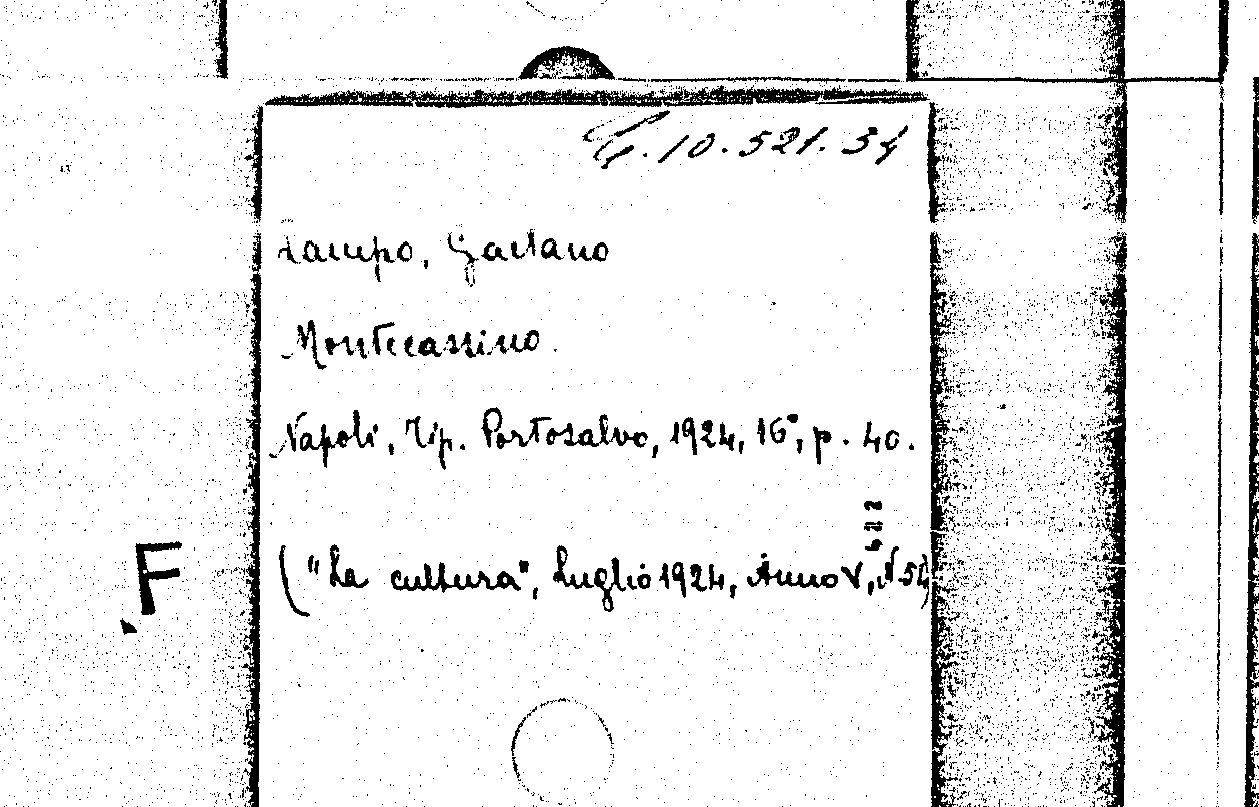 C.10.521.34
Zampo, Gaetano
Montecassino.
Napoli, Tip. Portosalvo, 1924, 16°, p. 40.
F
("La cultura", Luglio 1924, Anno V, N